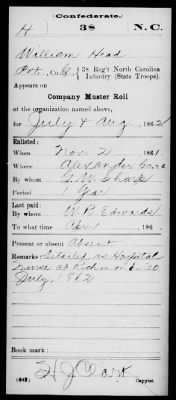 (Confederate.)
H 38 N.C.
William Head
Pvt., Co. G, 38 Reg't North Carolina
Infantry (State Troops).
Appears on
Company Muster Roll
of the organization named above,
for July & Aug, 1862
Enlisted:
When Nov 2, 1861
Where Alexander
By whom G. W. Sharpe
Period 1 Year
Last paid:
By whom W. R. Edwards
To what time Apr, 186
Present or absent Absent
Remarks: Detailed as Hospital
Nurse at Richmond 30
July, 1862
Book mark:
H J
(642) Copyist